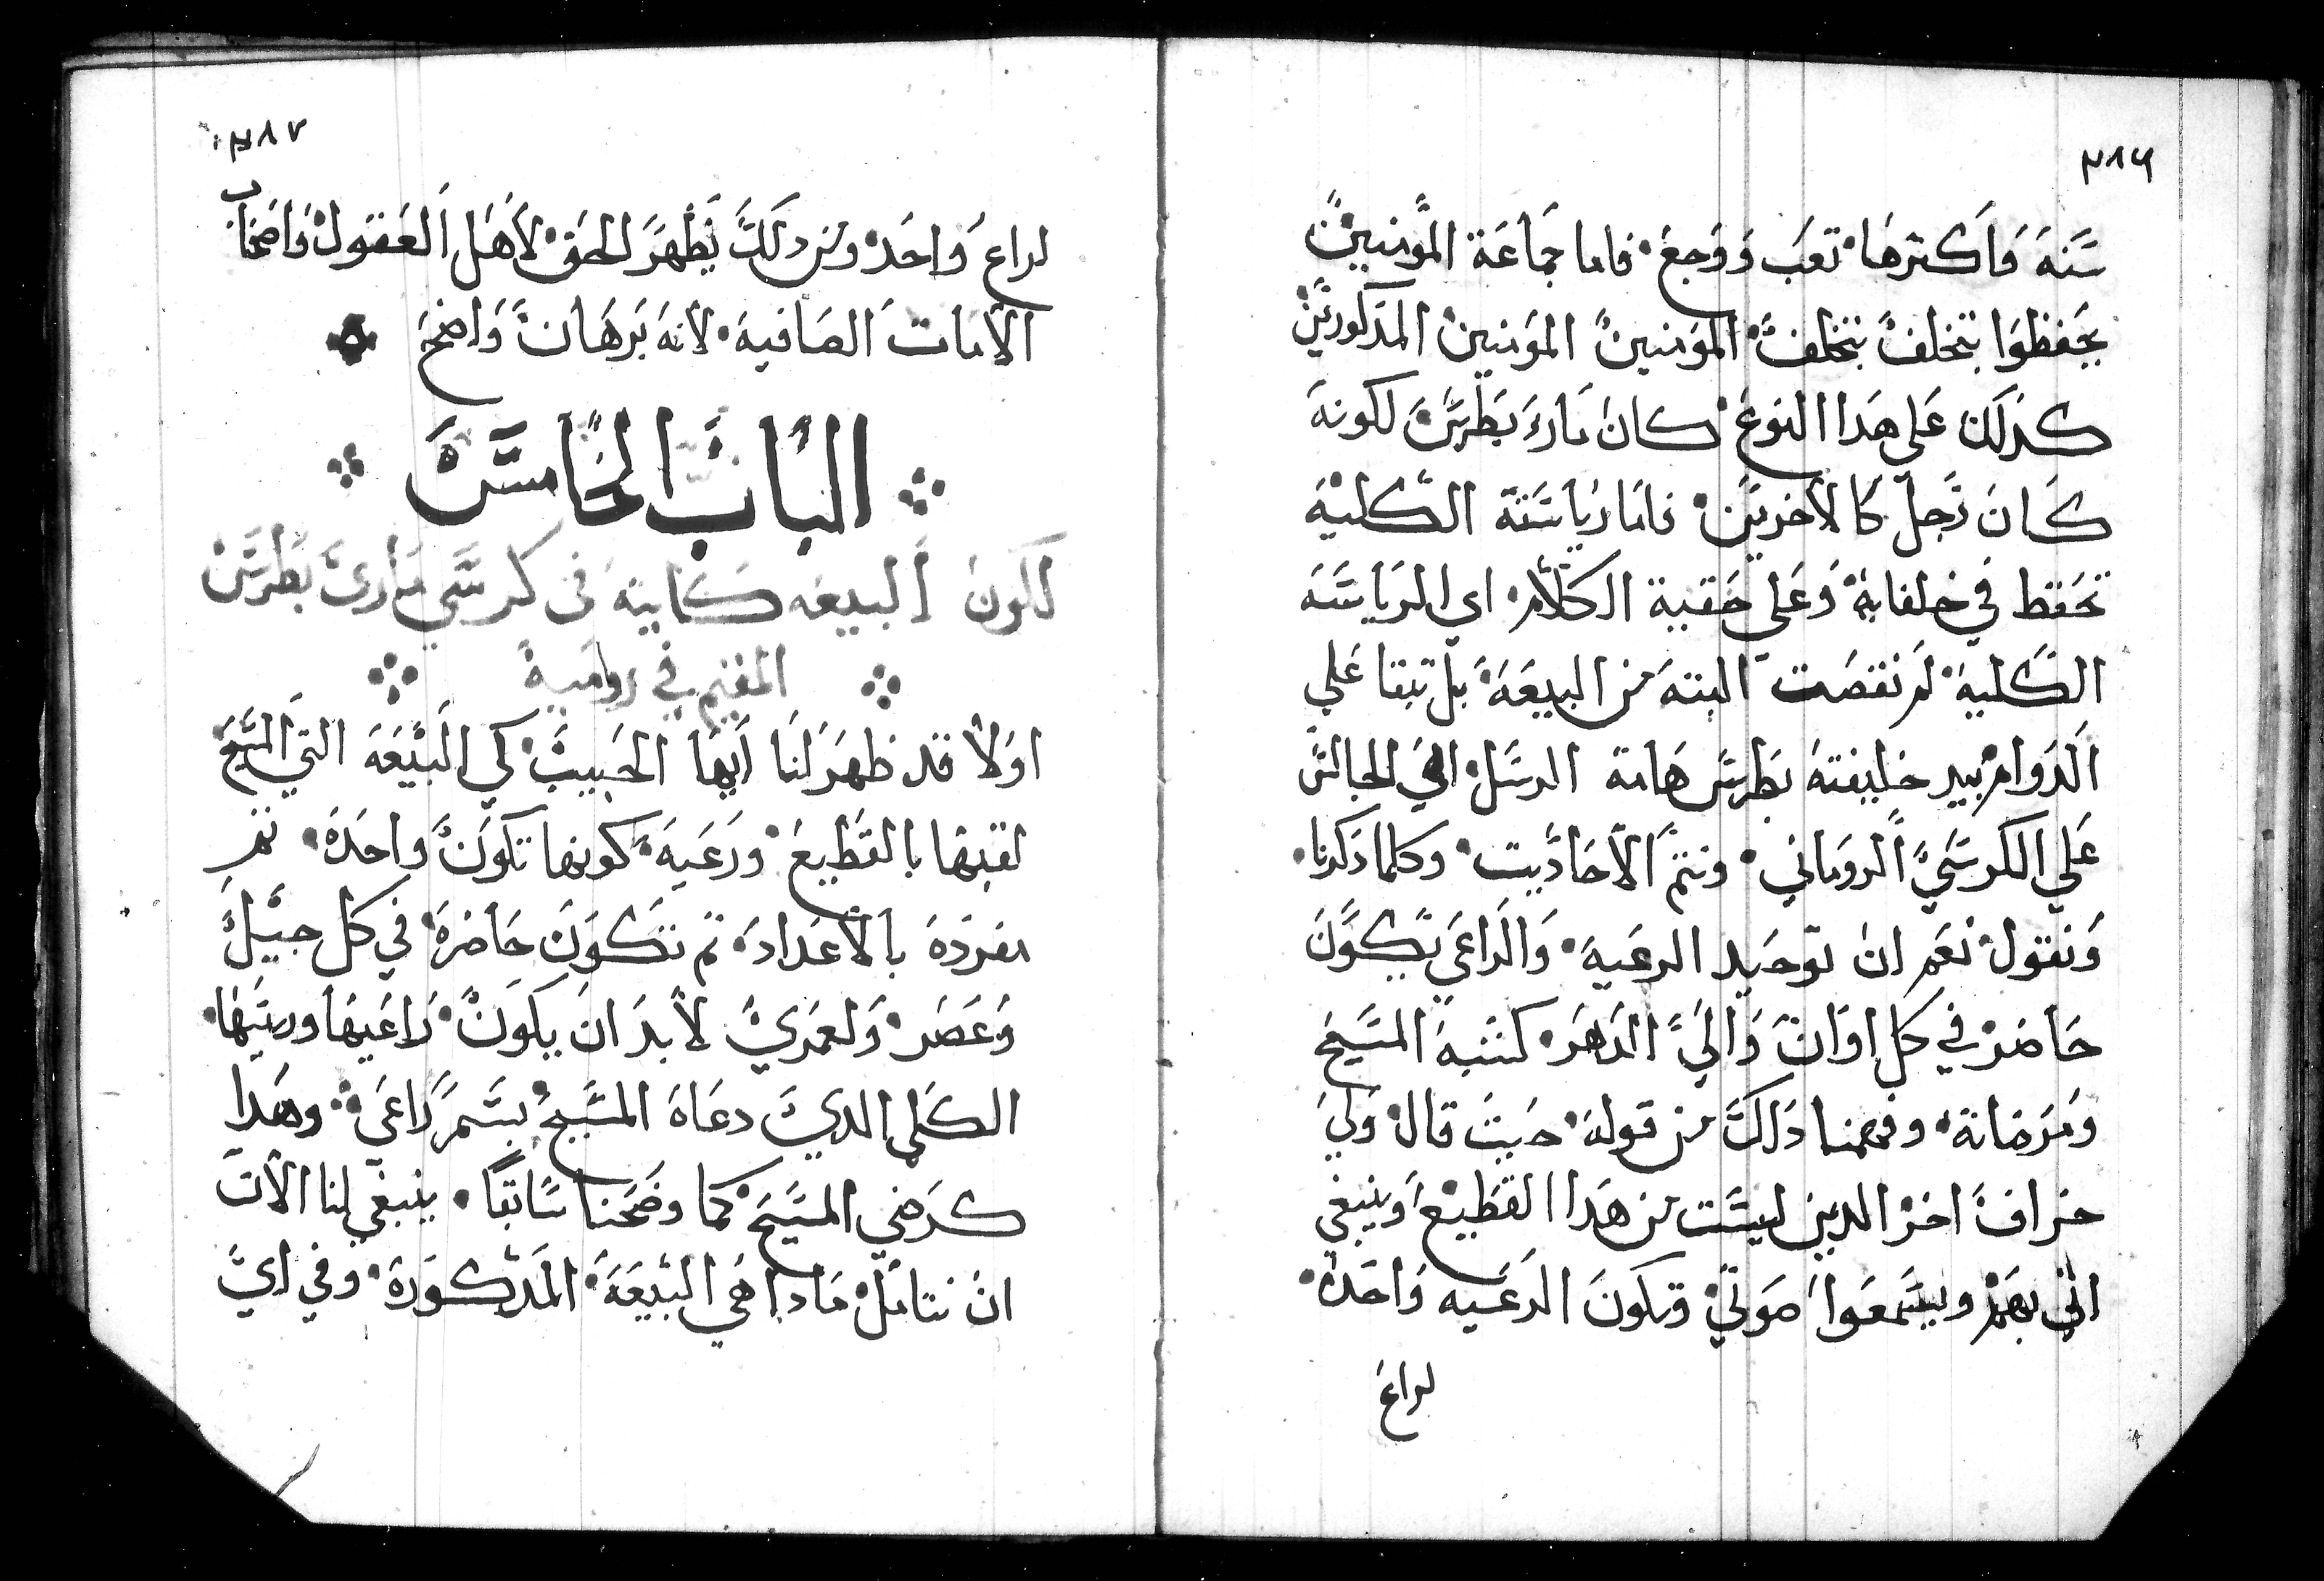 ٣٨٦
سنه واكترها تعب ووجع فاما جماعة المومنين
يحفظوا بتخلف بتخلف المومنين المومنين المدكورين
كدلك على هدا النوع كان مارى بطرس لكونه
كان رجل كالاخرين فاما رياسته الكليه
تحفظ في خلفايه وعلي حقيبة الكلام اي الرياسه
الكليه لم نقصت البته من البيعه بل تبقا علي
الدوام بيد خليفته بطرس هامة الرسل الجالس
علي الكرسي الروماني ونتم الاحاديت وكلما دكرنا
ونقول نعم ان توحيد الرعيه والراعى يكون
حاضر في كل اوان والي الدهر كتنبة المسيح
ومرضاته وفهمنا دلك من قوله حيث قال ولي
خراف اخر الدين ليست من هدا القطيع وينبغي
اتي بهم ويسمعوا صوتي وتكون الرعيه واحده
لراع
٣٨٧
لراع واحد ومن دلك يظهر الحق لاهل العقول واصحاب
الامات الصافيه لانه برهان واضح
الباب الخامس
لكون البيعه كاينة في كرسي مارى بطرس
المقيم في رومية
اولا قد ظهر لنا ايها الحبيب كي البيعه التي المسيح
لقبها بالقطيع ورعيه كونها تكون واحده تم
مفرده بالاعداد تم تتكون حاضرة في كل جيل
وعصر ولعمري لابد ان يكون راعيها وريسها
الكلي الدي دعاه المسيح بسم راعى وهدا
كرضي المسيح كما وضحنا سابقا ينبغي لنا الان
ان نتامل مادا هي البيعه المدكوره وفي اي